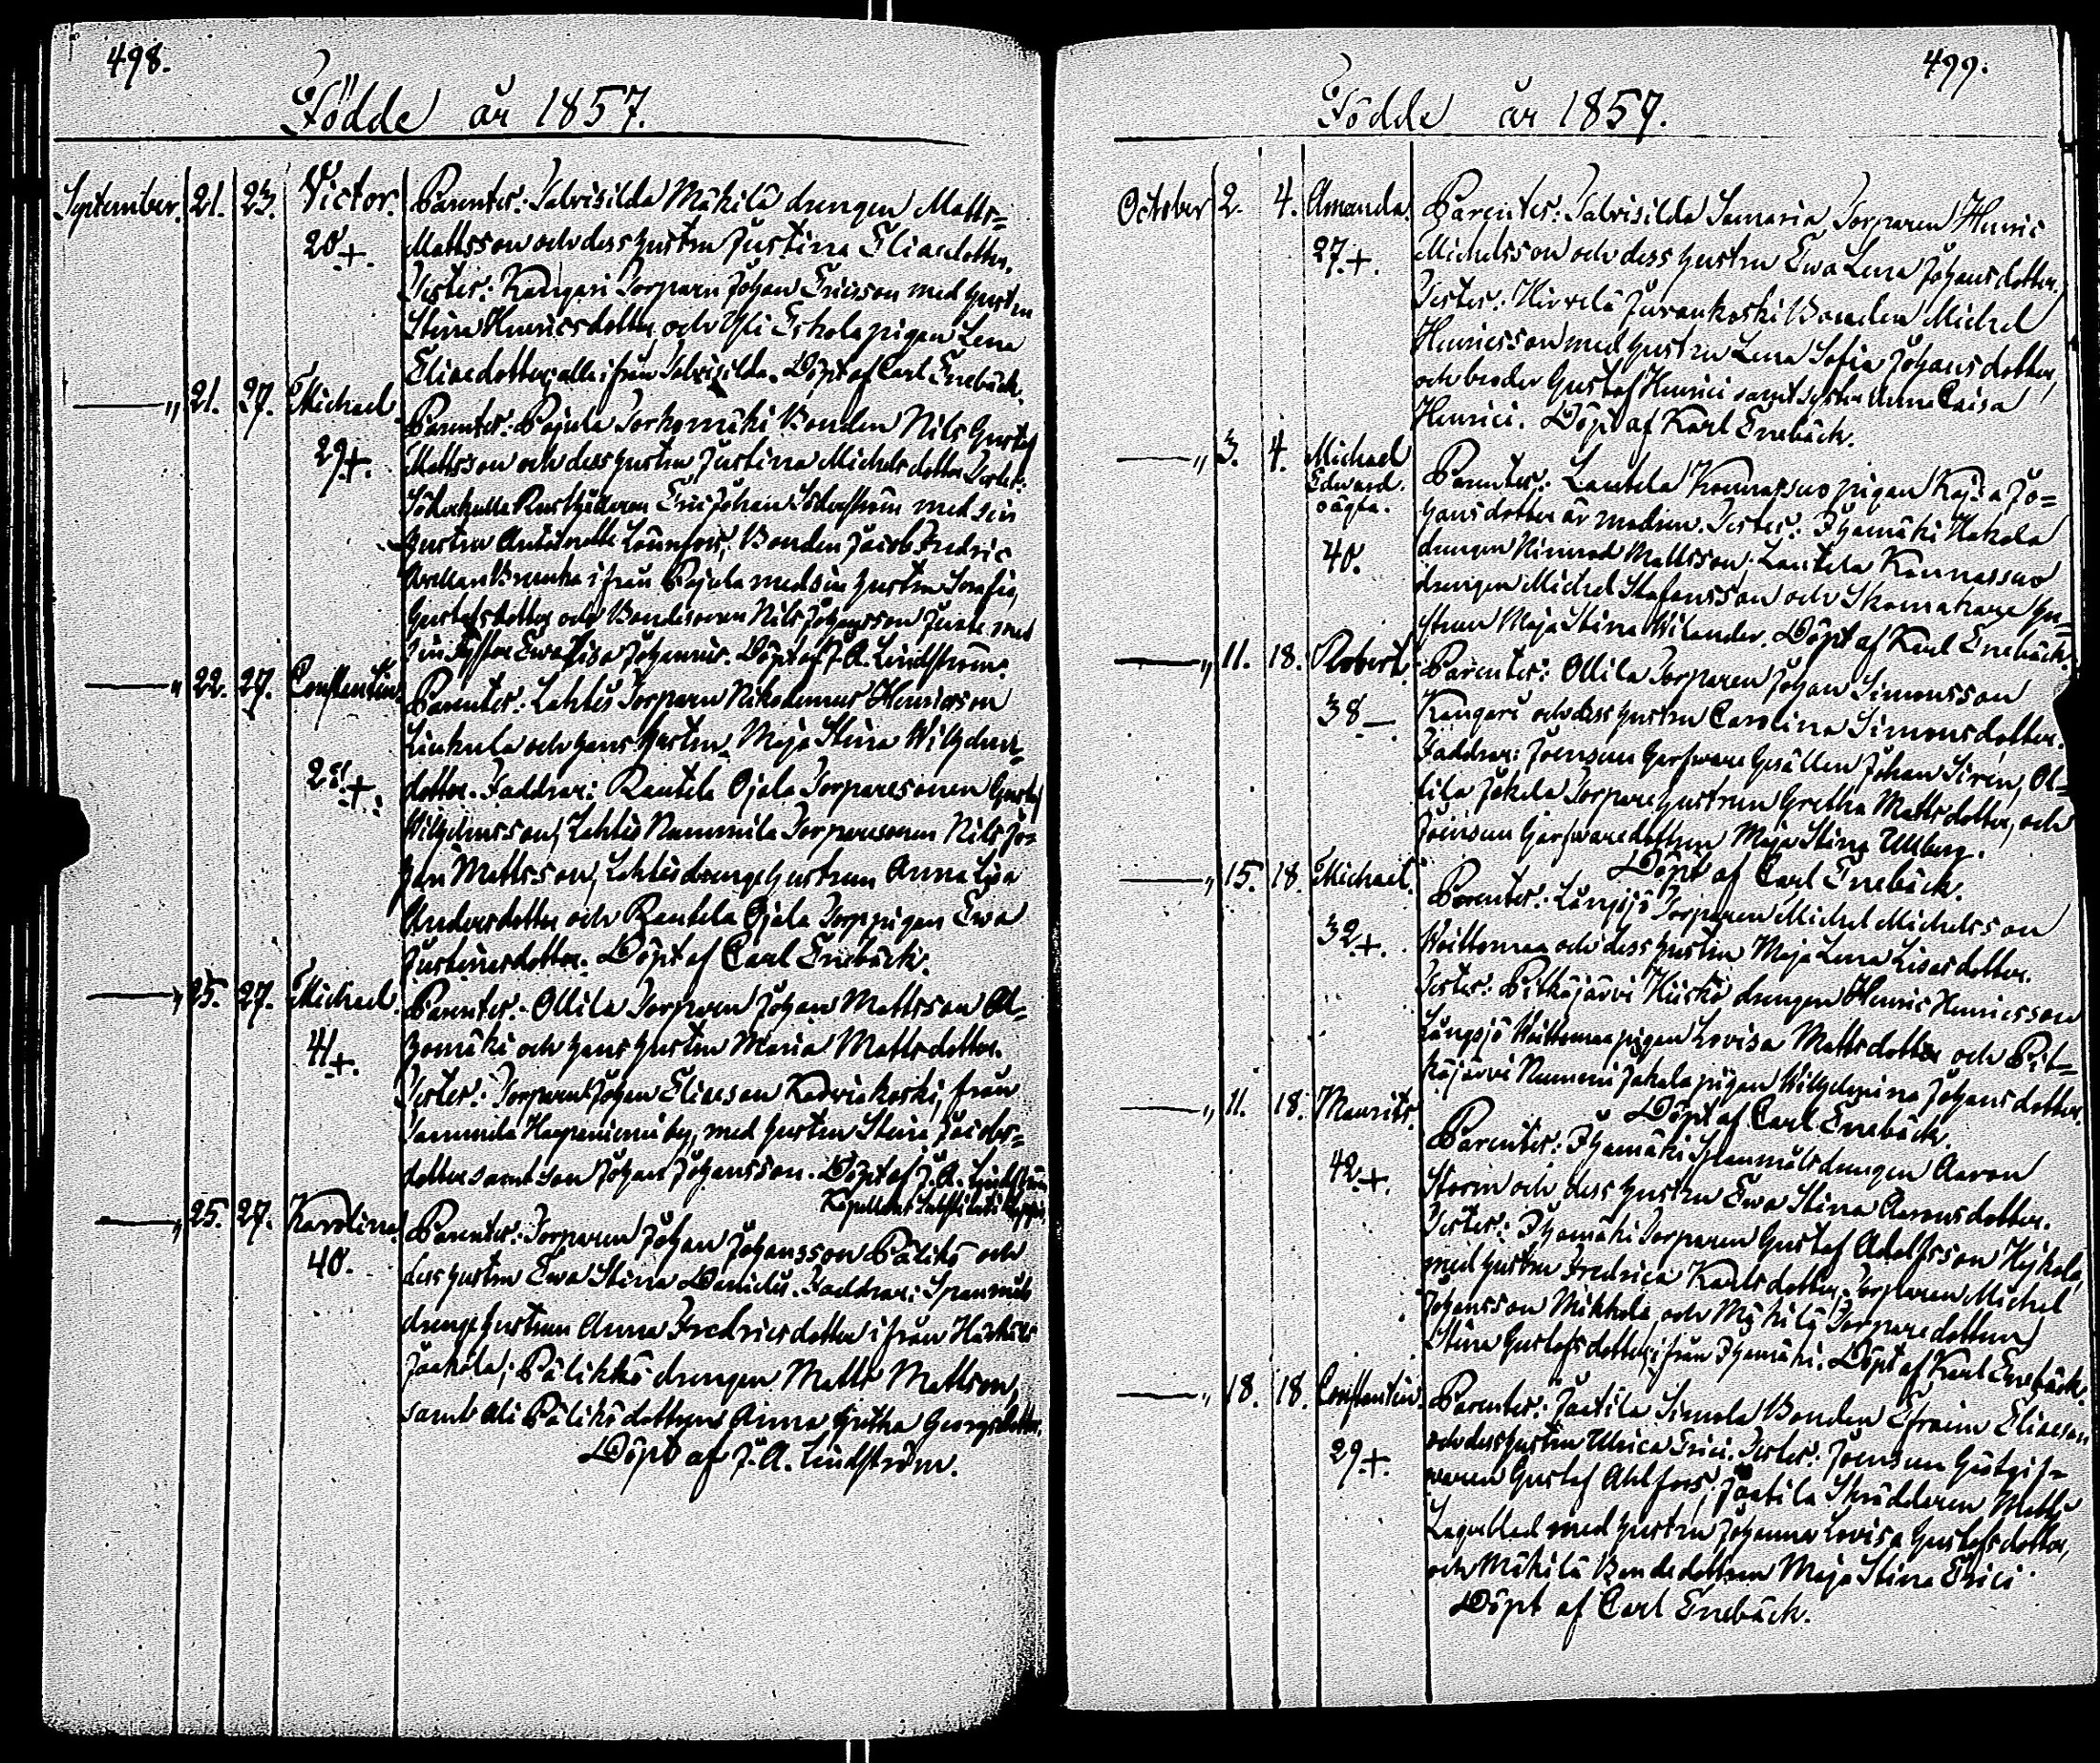 498.
Födde år 1857.
September. 21. 23. Victor. Parenter. Salvisilda Mäkilä drengen Matts=
28+. Mattsson och dess hustru Justina Eliaedotter.
Tester: Kangari Torparn Johan Ericson med hustru
Stina Henricsdotter, och Yli Eskola pigan Lena
Eliaedotter; alla ifrån Salvisilda. Döpt af Carl Enebäck.
—„ 21. 27. Michael. Parenter. Pajula Torkomäki Bonden Nils Gustaf
29+. Mattsson och dess hustru Justina Michelsdotter. Tester.
Söderkulla Rusthållaren Eric Johan Söderström med sin
hustru Antoinette Lönnfors, Bonden Jacob Fredric
ifrån Pajula med sin hustru Serafia
Gustafsdotter och Bondesonen Nils Johansson Junte med
sin Syster Ewa Lisa Johannis. Döpt af J. A. Lindström.
—„ 22. 27. Constantin. Parenter. Lahtis Torparn Nikodemus Henricsson
Liukula och hans hustru Maja Stina Wilhelms=
28+. dotter. Faddrar: Rautela Ojala Torparesonen Gustaf
Wilhelmsson, Lahtis Nummila Torparesonen Nils Jo=
han Mattsson, Lahtis drengehustrun Anna Lisa
Andersdotter och Rautela Ojala Torppigan Ewa
Justinesdotter. Döpt af Carl Enebäck.
—„ 25. 27. Michael. Parenter. Ollila Torparen Johan Mattsson Al=
41+. homäki och hans hustru Maria Mattsdotter.
Tester. Torparen Johan Eliaeson Karviakoski, från
Sammila Haapaniemi by, med hustru Stina Jacobs=
dotter samt son Johan Johansson. Döpt af J. A. Lindström
—„ 25. 27. Karolina. Parenter. Torparen Johan Johansson Pälikö och
40. dess hustru Ewa Stina Danielis. Faddrar: Spanmåls
drengehustrun Anna Fredricsdotter ifrån
Jaakola; Pälikkö drengen Matts Mattson,
samt Ali Pälikö dottren Anna Gretha Georgsdotter.
Döpt af J. A. Lindström.
499.
Födde år 1857.
October 2. 4. Amanda. Parenter: Salvisilda Samaria Torparen Henric
27.+. Michelsson och dess hustru Ewa Lena Johansdotter.
Tester: Hirvelä Jurankoski Bonden Michel
Henricsson med hustru Lena Sofia Johansdotter,
och broder Gustaf Henrici samt syster Anna Caisa
Henrici. Döpt af Karl Enebäck.
—„ 3. 4. Michael Parenter. Lautela Konnassuo pigan Kajsa Jo=
Edward. hansdotter är modren. Tester: Ihamäki Hakala
oägta. drengen Nimrod Mattsson. Lautela Konnassuo
40. drengen Michel Stefansson och Skomakare hu=
strun Maja Stina Wilander. Döpt af Karl Enebäck.
—„ 11. 18. Robert. Parenter: Ollila Torparen Johan Simonsson
38— Kangari och dess hustru Carolina Simonsdotter.
Faddrar: Joensuu Garfware Gesällen Johan Siren, Ol=
lila Jokela Torpare hustrun Gretha Mattsdotter, och
Joensuu Garfwaredottren Maja Stina Ullberg.
Döpt af Carl Enebäck.
—„ 15. 18. Michael. Parenter. Långsjö Torparen Michel Michelsson
32+. Woittomaa och dess hustru Maja Lena Lisasdotter.
Tester: Pitkäjärvi Hiiskö drengen Henric Henricsson
Långsjö Woittomaa pigan Lovisa Mattsdotter och Pit=
käjärvi Nummi Jakala pigan Wilhelmina Johansdotter.
Döpt af Carl Enebäck.
—„ 11. 18. Maurits. Parenter: Ihamäki Spanmålsdrengen Aaron
42+. Storm och dess hustru Ewa Stina Aaronsdotter.
Tester: Ihamäki Torparen Gustaf Adolfsson Hejkola,
med hustru Fredrica Karlsdotter, Torparen Michel
Johansson Mikkola, och Mäkilä Torparedottren
Stina Gustafsdotter; ifrån Ihamäki. Döpt af Karl Enebäck.
—„ 18. 18. Constantin. Parenter: Jaatila Simola Bonden Efraim Eliaeson
29+. och dess hustru Ulrica Erici. Tester: Joensuu Gästgif=
waren Gustaf Ahlfors, Jaatila Skräddaren Matts
Lagerblad med hustru Johanna Lovisa Gustafsdotter,
och Mäkilä Bondedottren Maja Stina Erici.
Döpt af Carl Enebäck.